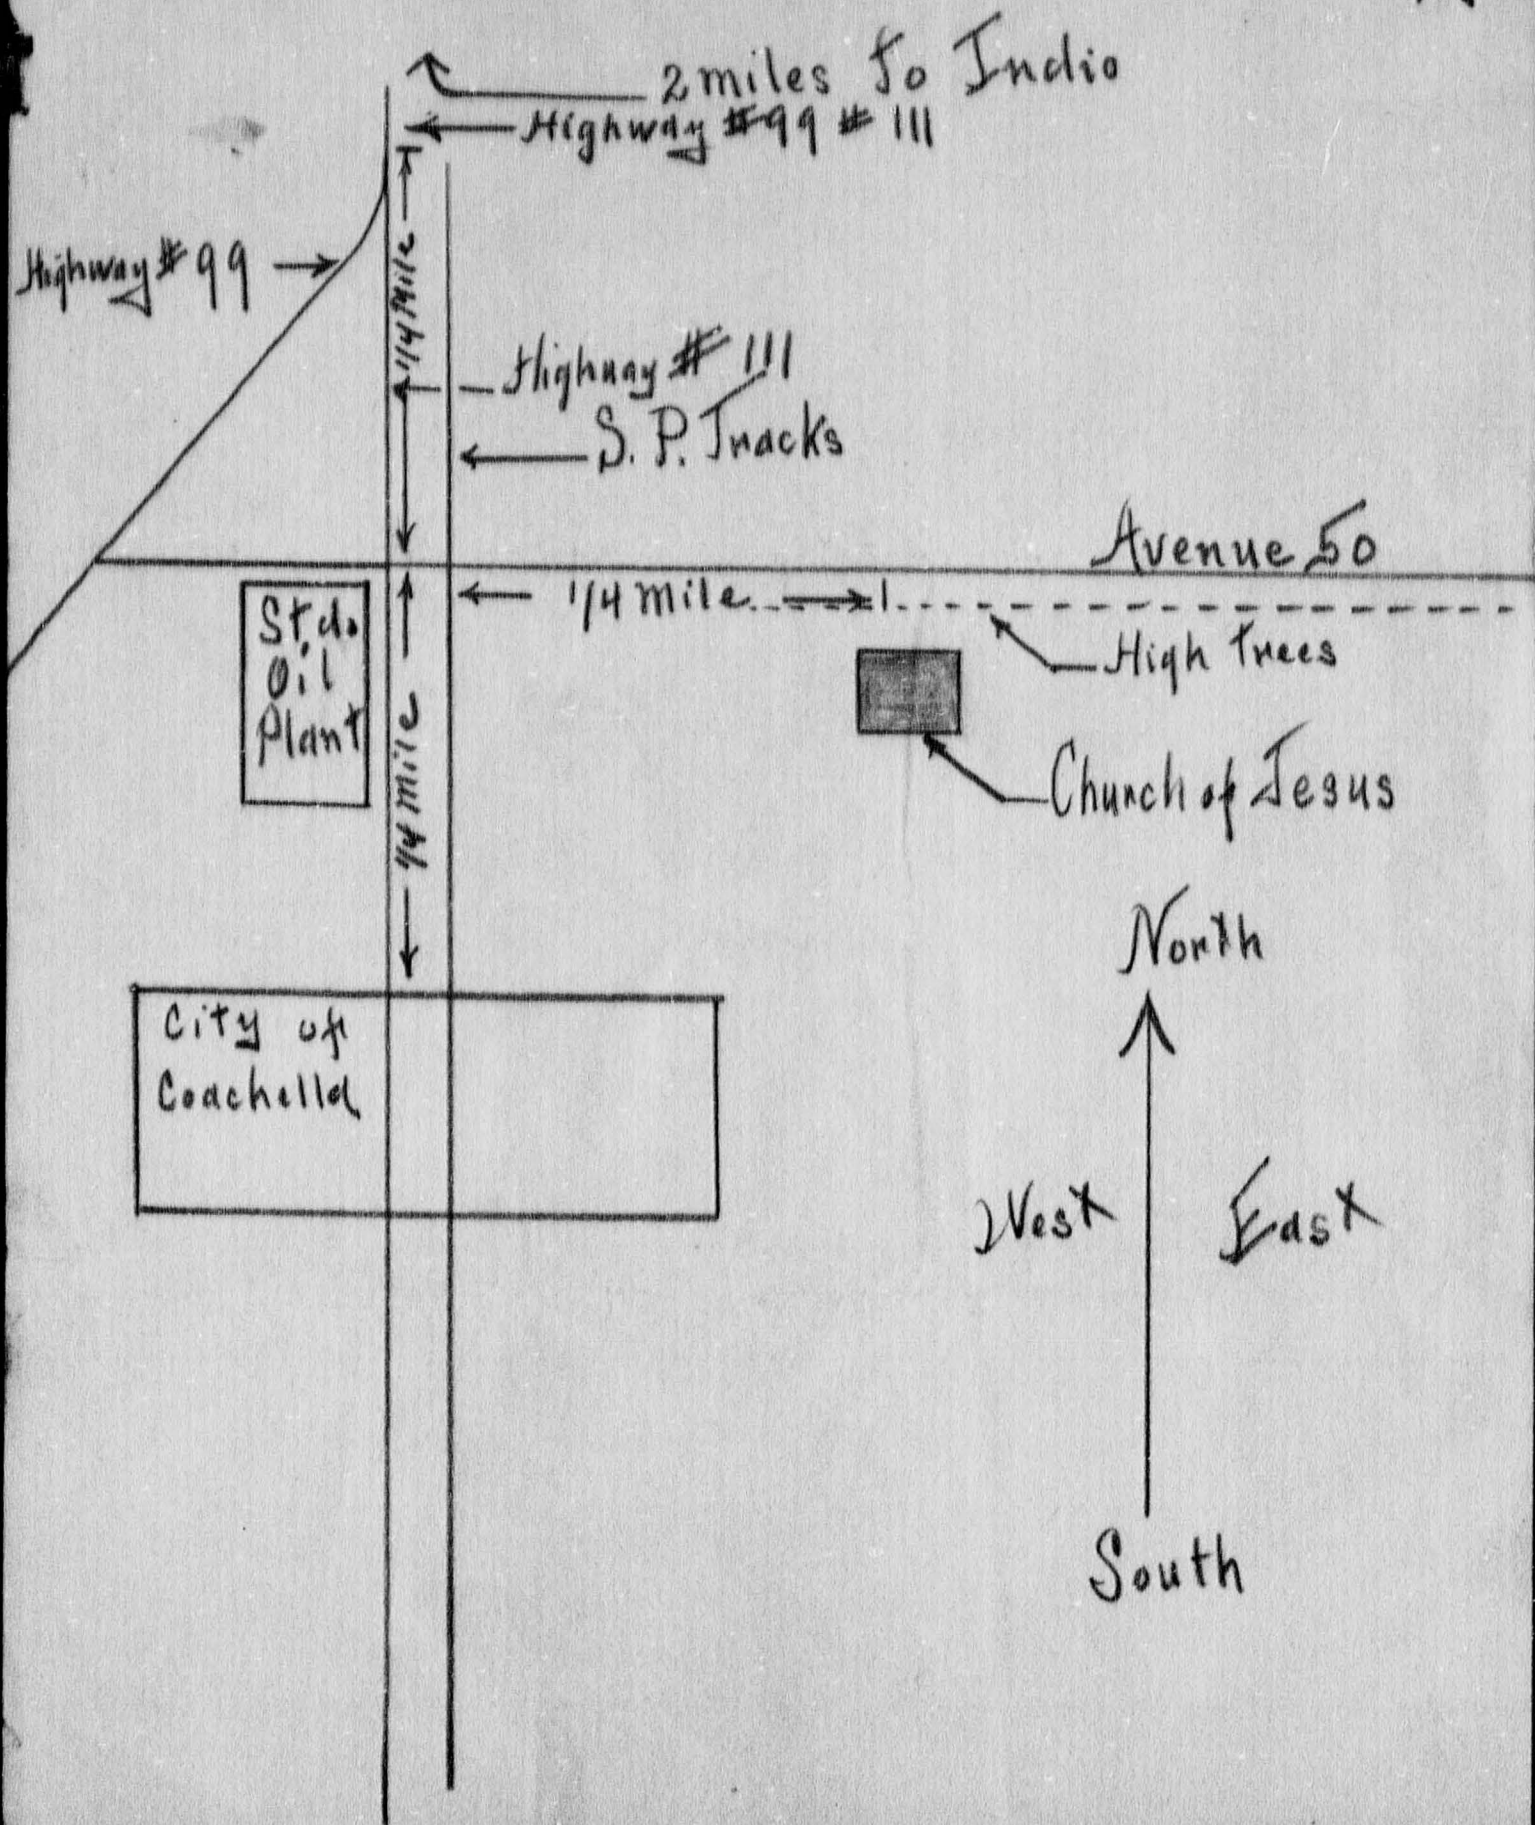 2 miles to Indio
Highway #99 # 111
Highway # 99
1/4 Mile
Highway # 111
S. P. Tracks
Avenue 50
1/4 mile
High Trees
Std.
Oil
Plant
1/4 mile
Church of Jesus
North
City of
Coachella
West
East
South